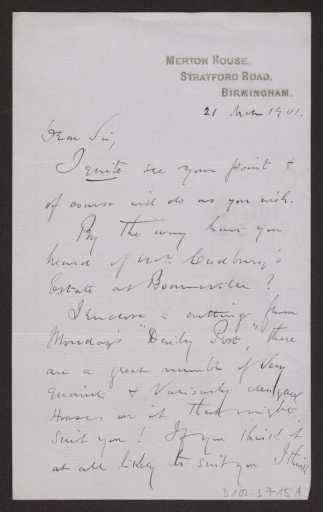 MERTON HOUSE,
STRATFORD ROAD,
BIRMINGHAM.
21 Nov 1901.
Dear Sir,
I quite see your point &
of course will do as you wish.
By the way have you
heard of Mr. Cadbury's
Estate at Bournville?
I enclose a cutting from
Monday's "Daily Post", there
are a great number of very
quaint & variously designed
Houses on it that might
suit you! If you think it
at all likely to suit you I think